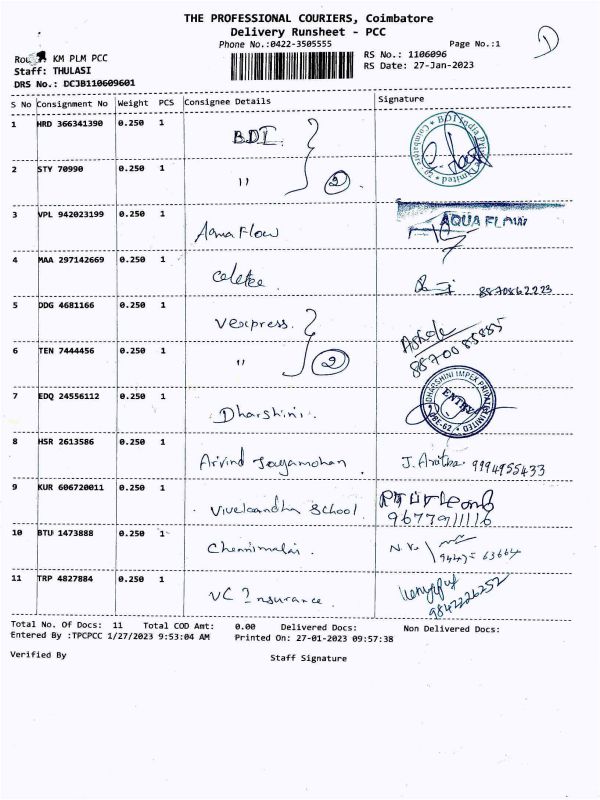 THE PROFESSIONAL COURIERS, Coimbatore
Delivery Runsheet - PCC
Phone No.:0422-3505555
Page No.:1
KM PLM PCC
RS No.: 1106096
Staff: THULASI
RS Date: 27-Jan-2023
DRS No.: DCJB110609601
S No Consignment No Weight PCS Consignee Details Signature
1 HRD 366341390 0.250 1 BDI
2 STY 70990 0.250 1 " 2
3 VPL 942023199 0.250 1 Aqua Flow AQUA FLOW
4 MAA 297142669 0.250 1 8870862223
5 DDG 4681166 0.250 1 Vexpress. 8870085885
6 TEN 7444456 0.250 1 " 2
7 EDQ 24556112 0.250 1 Dharshini. DHARSHINI IMPEX PRIVATE LIMITED ENTRY
8 HSR 2613586 0.250 1 Arvind Jayamohan J. 9994955433
9 KUR 606720011 0.250 1 School 9677911116
10 BTU 1473888 0.250 1 Chennimalai.
11 TRP 4827884 0.250 1 VC Insurance. 9842226252
Total No. Of Docs: 11 Total COD Amt: 0.00 Delivered Docs: Non Delivered Docs:
Entered By :TPCPCC 1/27/2023 9:53:04 AM Printed On: 27-01-2023 09:57:38
Verified By Staff Signature